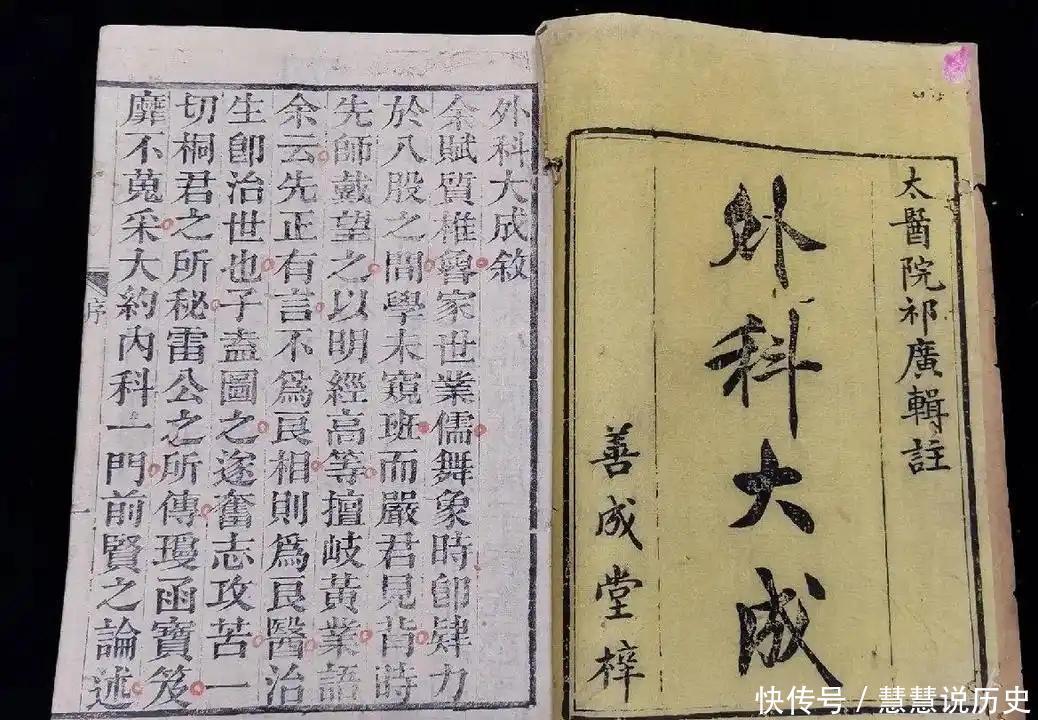 太醫院祁廣輯註
外科大成
善成堂梓
外科大成敘
余賦質椎魯家世業儒舞象時卽肄力
於八股之間學未窺班而嚴君見背時
先師戴望之以明經高等擅岐黃業語
余云先正有言不爲良相則爲良醫治
生卽治世也子盍圖之遂奮志攻苦一
切桐君之所秘雷公之所傳瓊函寶笈
靡不蒐采大約內科一門前賢之論述
序
一
快传号/慧慧说历史